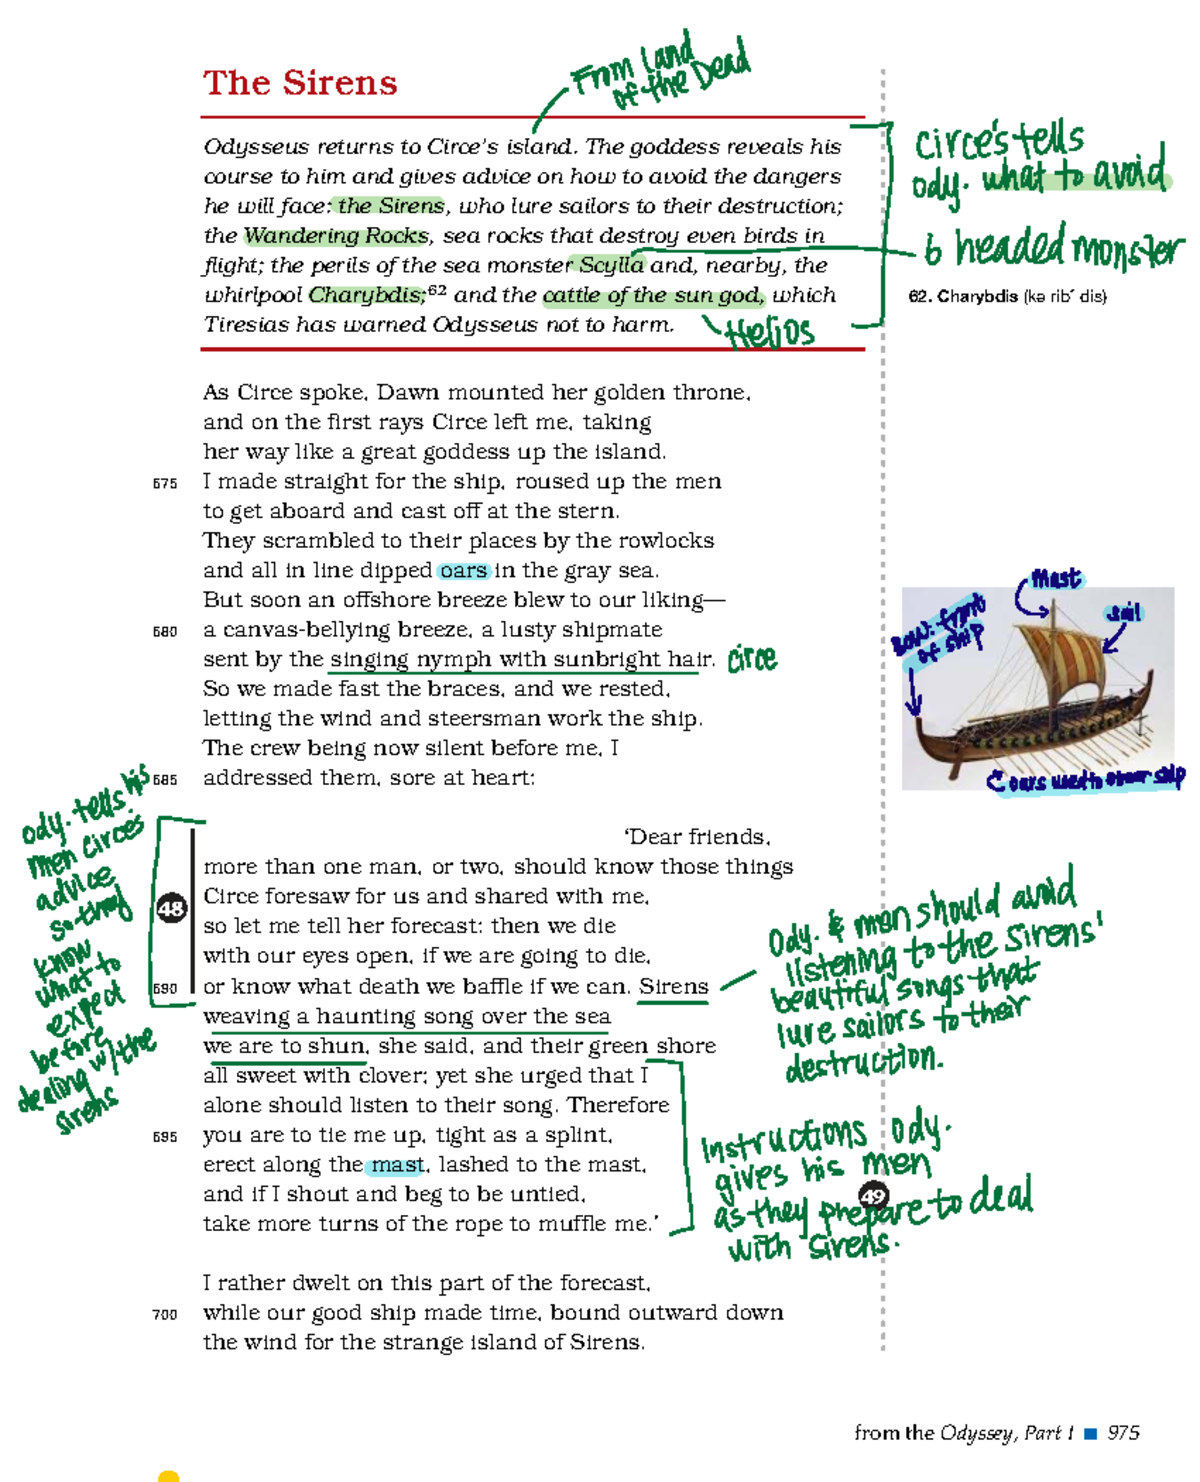 The Sirens
From Land
of the Dead
Odysseus returns to Circe's island. The goddess reveals his
course to him and gives advice on how to avoid the dangers
he will face: the Sirens, who lure sailors to their destruction;
the Wandering Rocks, sea rocks that destroy even birds in
flight; the perils of the sea monster Scylla and, nearby, the
whirlpool Charybdis;62 and the cattle of the sun god, which
Tiresias has warned Odysseus not to harm.
Helios
circe's tells
ody. what to avoid
6 headed monster
62. Charybdis (kə rib´ dis)
As Circe spoke, Dawn mounted her golden throne,
and on the first rays Circe left me, taking
her way like a great goddess up the island.
675 I made straight for the ship, roused up the men
to get aboard and cast off at the stern.
They scrambled to their places by the rowlocks
and all in line dipped oars in the gray sea.
But soon an offshore breeze blew to our liking—
680 a canvas-bellying breeze, a lusty shipmate
sent by the singing nymph with sunbright hair. circe
So we made fast the braces, and we rested,
letting the wind and steersman work the ship.
The crew being now silent before me, I
685 addressed them, sore at heart:
mast
sail
bow: front
of ship
oars used to steer ship
'Dear friends,
more than one man, or two, should know those things
48 Circe foresaw for us and shared with me,
so let me tell her forecast: then we die
with our eyes open, if we are going to die,
690 or know what death we baffle if we can. Sirens
weaving a haunting song over the sea
we are to shun, she said, and their green shore
all sweet with clover; yet she urged that I
alone should listen to their song. Therefore
695 you are to tie me up, tight as a splint,
erect along the mast, lashed to the mast,
and if I shout and beg to be untied,
take more turns of the rope to muffle me.'
ody. tells his
men circes
advice
so they
know
what to
expect
before
dealing w/ the
sirens
Ody. & men should avoid
listening to the sirens'
beautiful songs that
lure sailors to their
destruction.
Instructions ody.
gives his men
49
as they prepare to deal
with sirens.
I rather dwelt on this part of the forecast,
700 while our good ship made time, bound outward down
the wind for the strange island of Sirens.
from the Odyssey, Part 1 ■ 975